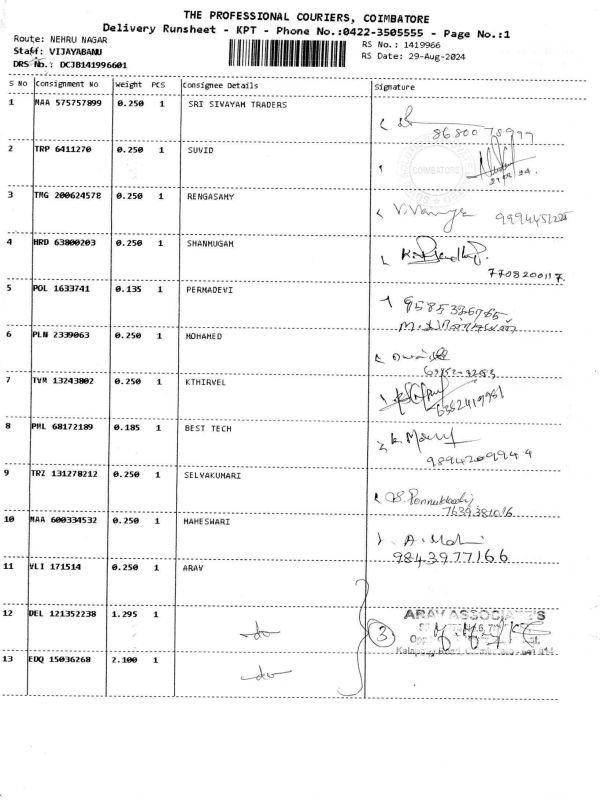 THE PROFESSIONAL COURIERS, COIMBATORE
Delivery Runsheet - KPT - Phone No.:0422-3505555 - Page No.:1
Route: NEHRU NAGAR
RS No.: 1419966
Staff: VIJAYABANU
RS Date: 29-Aug-2024
DRS No.: DCJB141996601
S NO Consignment No Weight PCS Consignee Details Signature
1 MAA 575757899 0.250 1 SRI SIVAYAM TRADERS
8680078977
2 TRP 6411270 0.250 1 SUVID
COIMBATORE
3 TMG 200624578 0.250 1 RENGASAMY
4 HRD 63800203 0.250 1 SHANMUGAM
7708200117.
5 POL 1633741 0.135 1 PERMADEVI
9585326765
6 PLN 2339063 0.250 1 MOHAMED
7 TVM 13243802 0.250 1 KTHIRVEL
8 PML 68172189 0.185 1 BEST TECH
9 TRZ 131278212 0.250 1 SELVAKUMARI
10 MAA 600334532 0.250 1 MAHESWARI
A. Mohi
9843977166
11 VLI 171514 0.250 1 ARAV
12 DEL 121352238 1.295 1 -do- 3 ARAV ASSOCIATES
13 EDQ 15036268 2.100 1 -do-